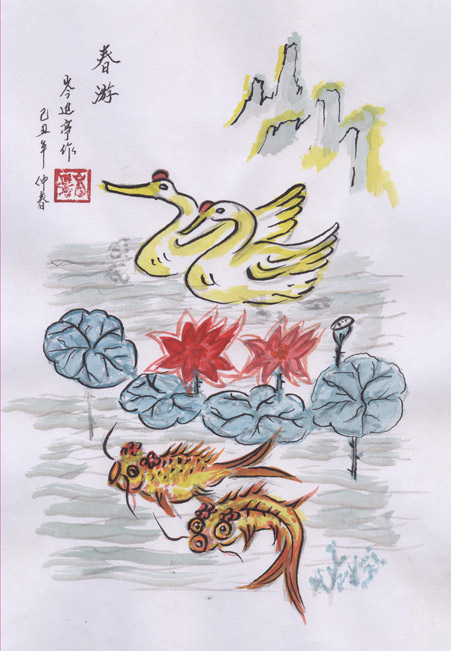 春游
岑進亭作
己丑年仲春